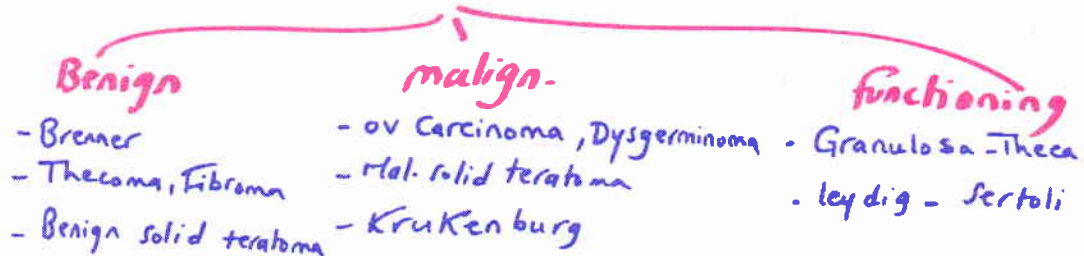 Benign
- Brenner
- Thecoma, Fibroma
- Benign solid teratoma
malign.
- ov Carcinoma, Dysgerminoma
- Mal. solid teratoma
- Krukenburg
functioning
. Granulosa - Theca
. leydig - Sertoli